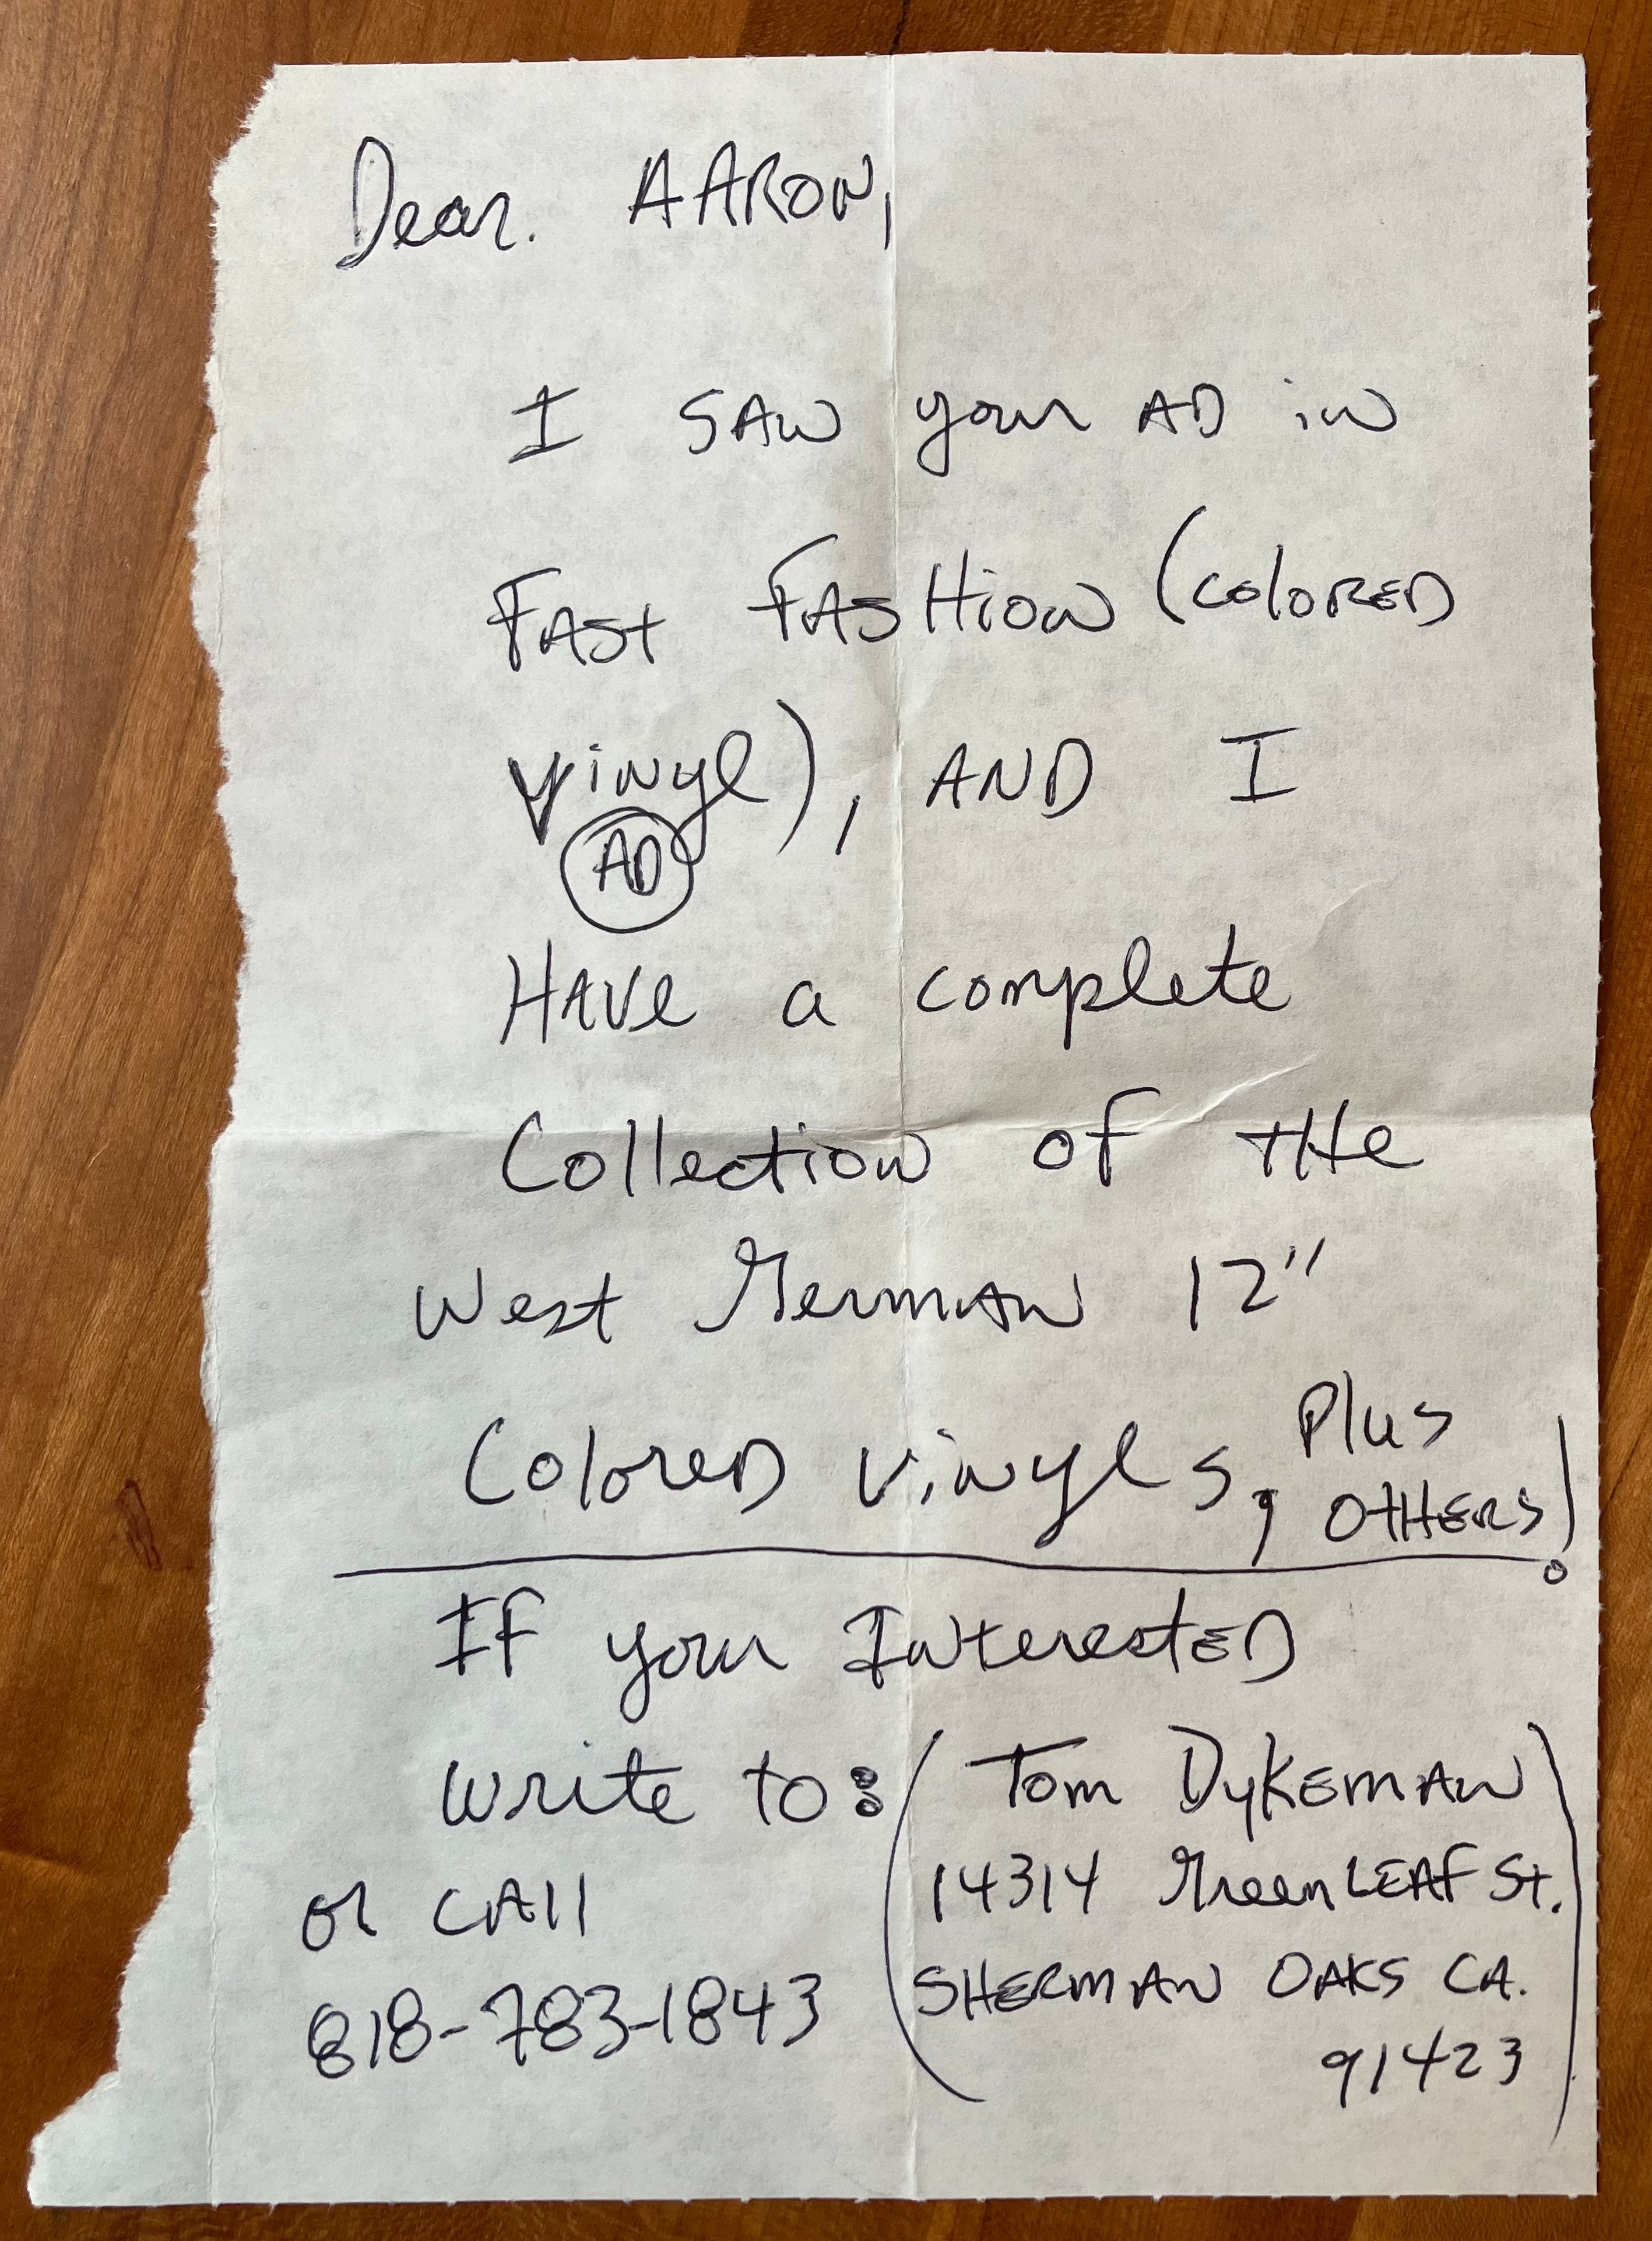 Dear. AARON,
I SAW your AD in
FAST FASHION (COLORED
vinyl), AND I
AD
HAVE a complete
Collection of THe
West German 12"
Colored vinyls, Plus
OTHERS!
If your InterestED
write to: (Tom DyKEMAN
14314 GreenLEAF St.
or CAll
SHERMAN OAKS CA.
818-783-1843
91423)